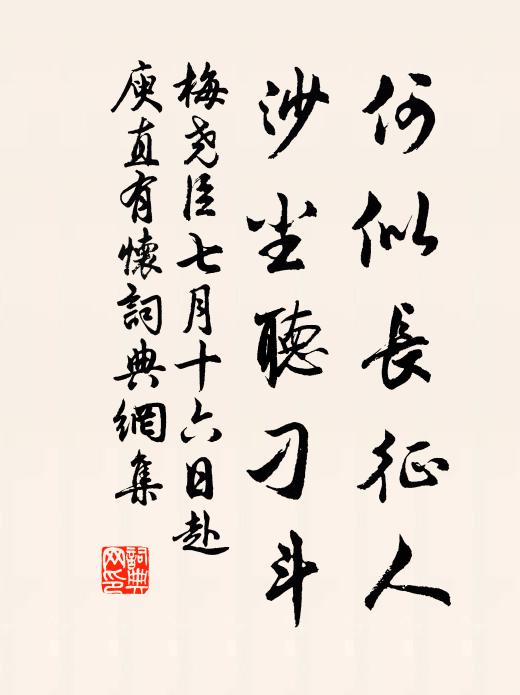 何似長征人
沙尘聽刁斗
梅尧臣七月十六日赴
庾直有懷詞典網集
詞典网印